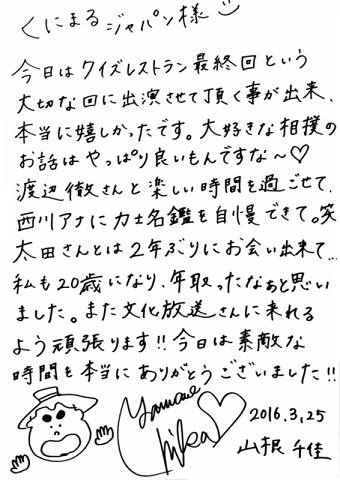 くにまるジャパン様
今日はクイズレストラン最終回という
大切な回に出演させて頂く事が出来、
本当に嬉しかったです。大好きな相撲の
お話はやっぱり良いもんですな〜♡
渡辺徹さんと楽しい時間を過ごせて、
西川アナに力士名鑑を自慢できて。笑
太田さんとは2年ぶりにお会い出来て…
私も20歳になり、年取ったなぁと思い
ました。また文化放送さんに来れる
よう頑張ります!!今日は素敵な
時間を本当にありがとうございました!!
Yamane
Chika
2016.3.25
山根 千佳